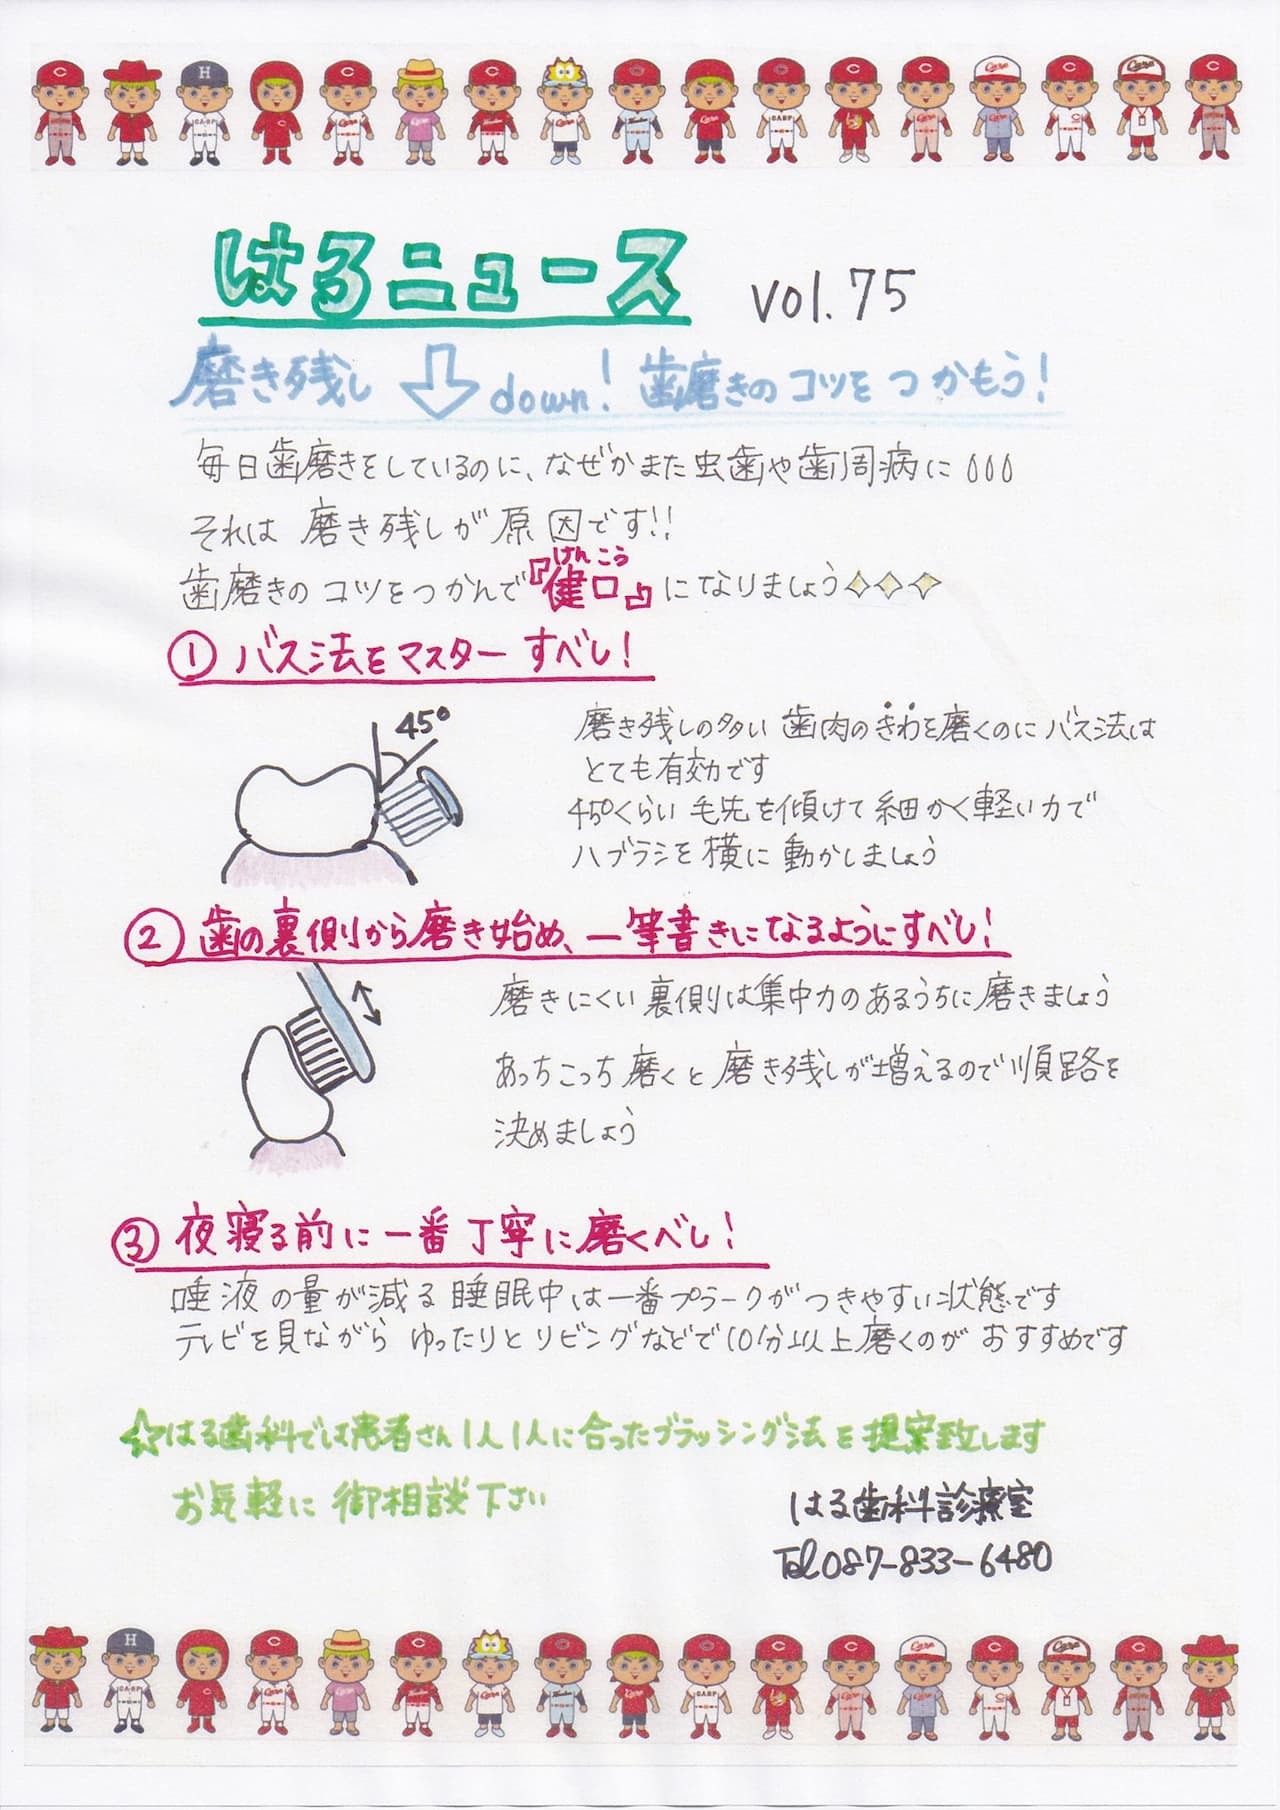 はるニュース vol.75
磨き残し down! 歯磨きのコツをつかもう!
毎日歯磨きをしているのに、なぜかまた虫歯や歯周病に
それは 磨き残しが原因です!!
けんこう
歯磨きのコツをつかんで『健口』になりましょう
① バス法をマスターすべし!
45°
磨き残しの多い歯肉のきわを磨くのにバス法は
とても有効です
45°くらい毛先を傾けて細かく軽い力で
ハブラシを横に動かしましょう
② 歯の裏側から磨き始め、一筆書きになるようにすべし!
磨きにくい裏側は集中力のあるうちに磨きましょう
あっちこっち磨くと磨き残しが増えるので順路を
決めましょう
③ 夜寝る前に一番丁寧に磨くべし!
唾液の量が減る睡眠中は一番プラークがつきやすい状態です
テレビを見ながらゆったりとリビングなどで10分以上磨くのがおすすめです
☆はる歯科では患者さん1人1人に合ったブラッシング法を提案致します
お気軽に御相談下さい
はる歯科診療室
Tel 087-833-6480